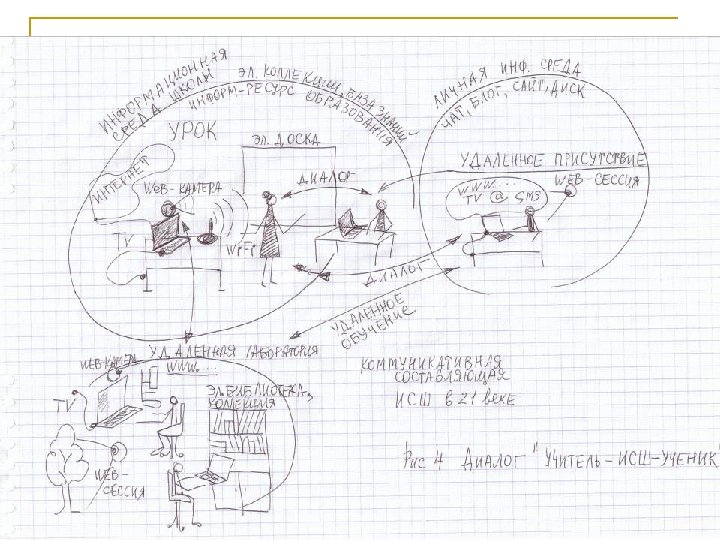 ИНФОРМАЦИОННАЯ
СРЕДА ШКОЛЫ
ЭЛ. КОЛЛЕКЦИИ, БАЗА ЗНАНИЙ-
ИНФОРМ-РЕСУРС ОБРАЗОВАНИЯ
УРОК
ЭЛ. ДОСКА
ИНТЕРНЕТ
WEB-КАМЕРА
ДИАЛОГ
TV
Wi-Fi
ЛИЧНАЯ ИНФ. СРЕДА
ЧАТ, БЛОГ, САЙТ, ДИСК
УДАЛЕННОЕ ПРИСУТСТВИЕ
WEB-СЕССИЯ
WWW...
TV @ SMS
ДИАЛОГ
УДАЛЕННОЕ
ОБУЧЕНИЕ
УДАЛЕННАЯ ЛАБОРАТОРИЯ
WEB-КАМЕРА
WWW...
TV
ЭЛ. БИБЛИОТЕКА,
КОЛЛЕКЦИЯ
WEB-
СЕССИЯ
КОММУНИКАТИВНАЯ
СОСТАВЛЯЮЩАЯ
ИСШ В 21 ВЕКЕ
Рис 4 ДИАЛОГ "УЧИТЕЛЬ-ИСШ-УЧЕНИК"